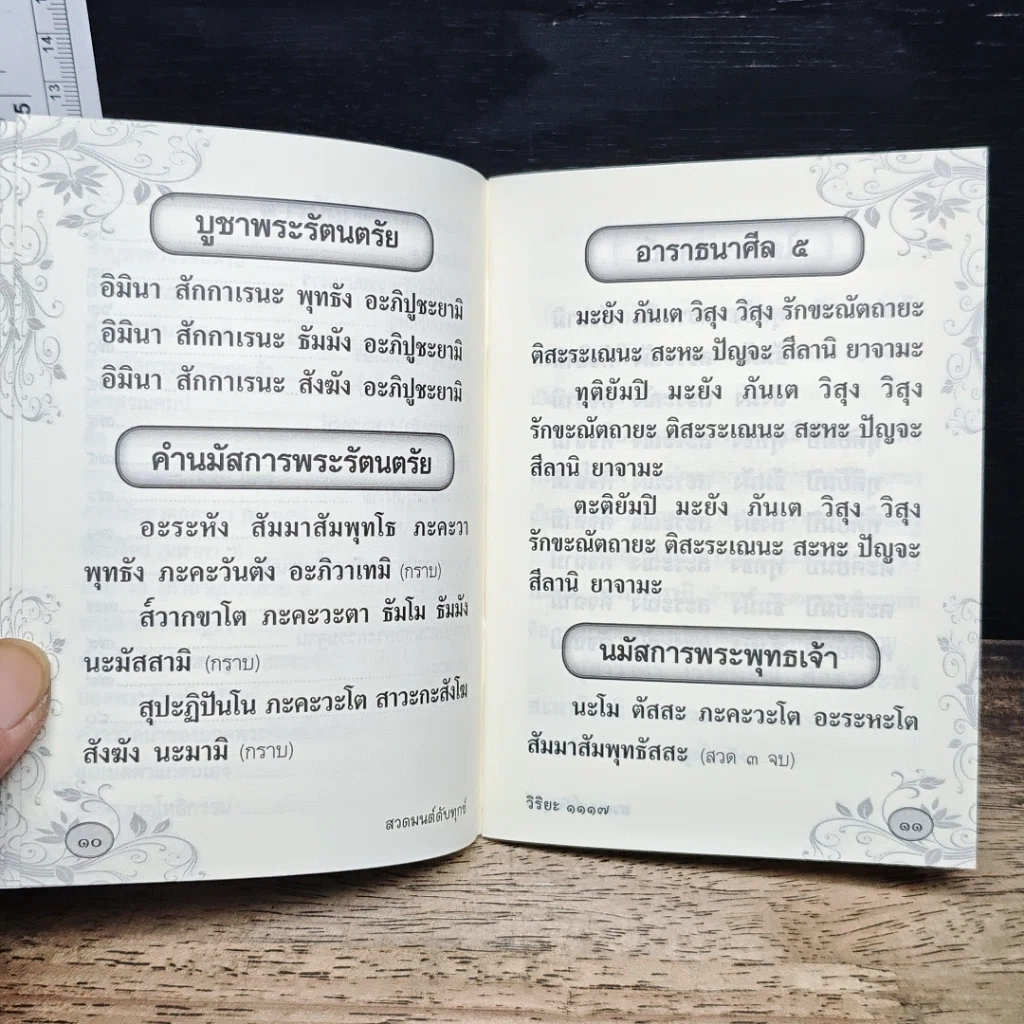 บูชาพระรัตนตรัย
อิมินา สักกาเรนะ พุทธัง อะภิปูชะยามิ
อิมินา สักกาเรนะ ธัมมัง อะภิปูชะยามิ
อิมินา สักกาเรนะ สังฆัง อะภิปูชะยามิ
คำนมัสการพระรัตนตรัย
อะระหัง สัมมาสัมพุทโธ ภะคะวา
พุทธัง ภะคะวันตัง อะภิวาเทมิ (กราบ)
ส๎วากขาโต ภะคะวะตา ธัมโม ธัมมัง
นะมัสสามิ (กราบ)
สุปะฏิปันโน ภะคะวะโต สาวะกะสังโฆ
สังฆัง นะมามิ (กราบ)
สวดมนต์ดับทุกข์
๑๐
อาราธนาศีล ๕
มะยัง ภันเต วิสุง วิสุง รักขะณัตถายะ
ติสะระเณนะ สะหะ ปัญจะ สีลานิ ยาจามะ
ทุติยัมปิ มะยัง ภันเต วิสุง วิสุง
รักขะณัตถายะ ติสะระเณนะ สะหะ ปัญจะ
สีลานิ ยาจามะ
ตะติยัมปิ มะยัง ภันเต วิสุง วิสุง
รักขะณัตถายะ ติสะระเณนะ สะหะ ปัญจะ
สีลานิ ยาจามะ
นมัสการพระพุทธเจ้า
นะโม ตัสสะ ภะคะวะโต อะระหะโต
สัมมาสัมพุทธัสสะ (สวด ๓ จบ)
วิริยะ ๑๑๑๗
๑๑
14
13
5